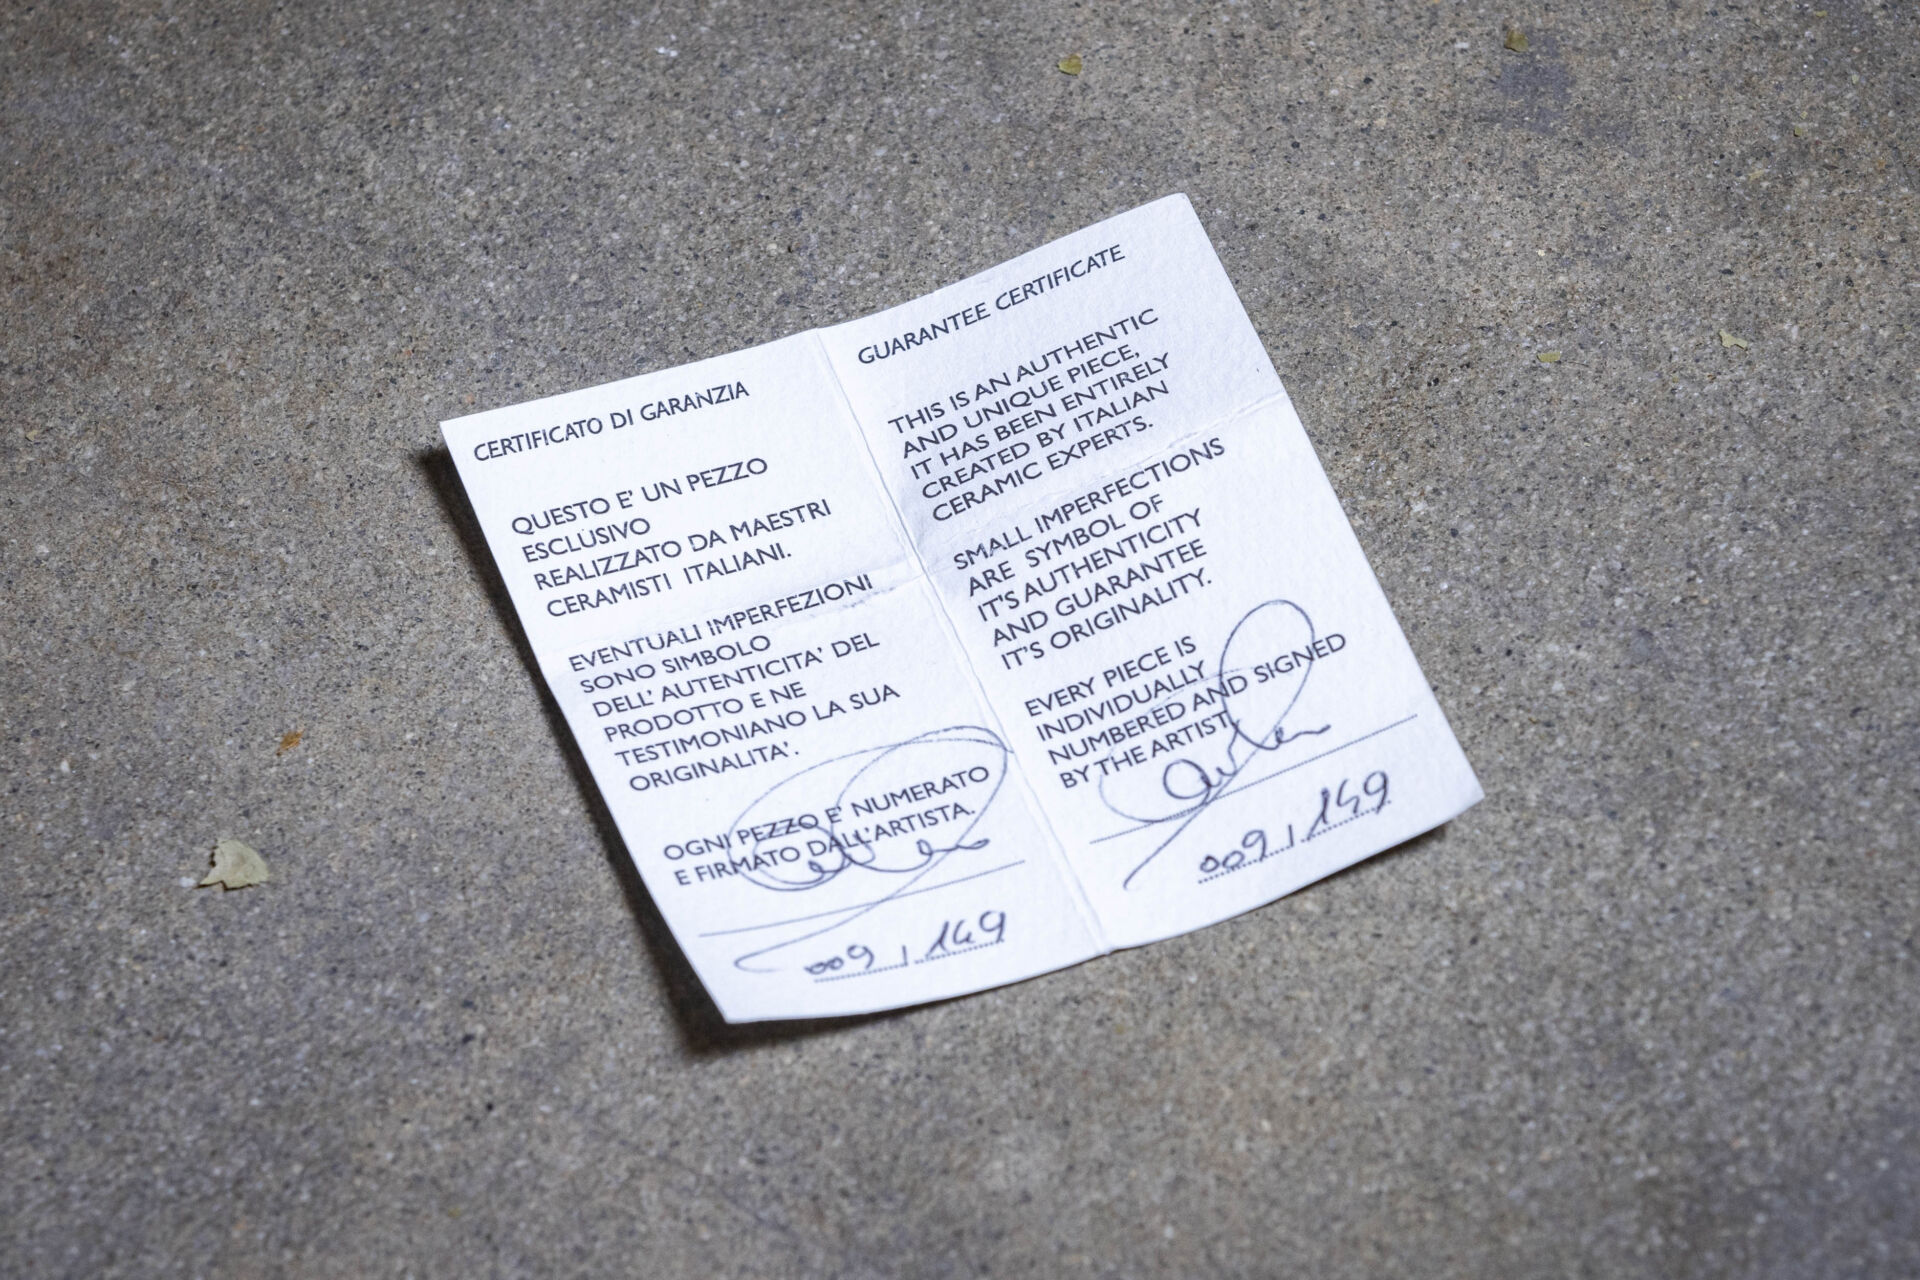 CERTIFICATO DI GARANZIA
QUESTO E' UN PEZZO
ESCLUSIVO
REALIZZATO DA MAESTRI
CERAMISTI ITALIANI.
EVENTUALI IMPERFEZIONI
SONO SIMBOLO
DELL' AUTENTICITA' DEL
PRODOTTO E NE
TESTIMONIANO LA SUA
ORIGINALITA'.
OGNI PEZZO E' NUMERATO
E FIRMATO DALL'ARTISTA.
009 / 149
GUARANTEE CERTIFICATE
THIS IS AN AUTHENTIC
AND UNIQUE PIECE,
IT HAS BEEN ENTIRELY
CREATED BY ITALIAN
CERAMIC EXPERTS.
SMALL IMPERFECTIONS
ARE SYMBOL OF
IT'S AUTHENTICITY
AND GUARANTEE
IT'S ORIGINALITY.
EVERY PIECE IS
INDIVIDUALLY
NUMBERED AND SIGNED
BY THE ARTIST.
009 / 149